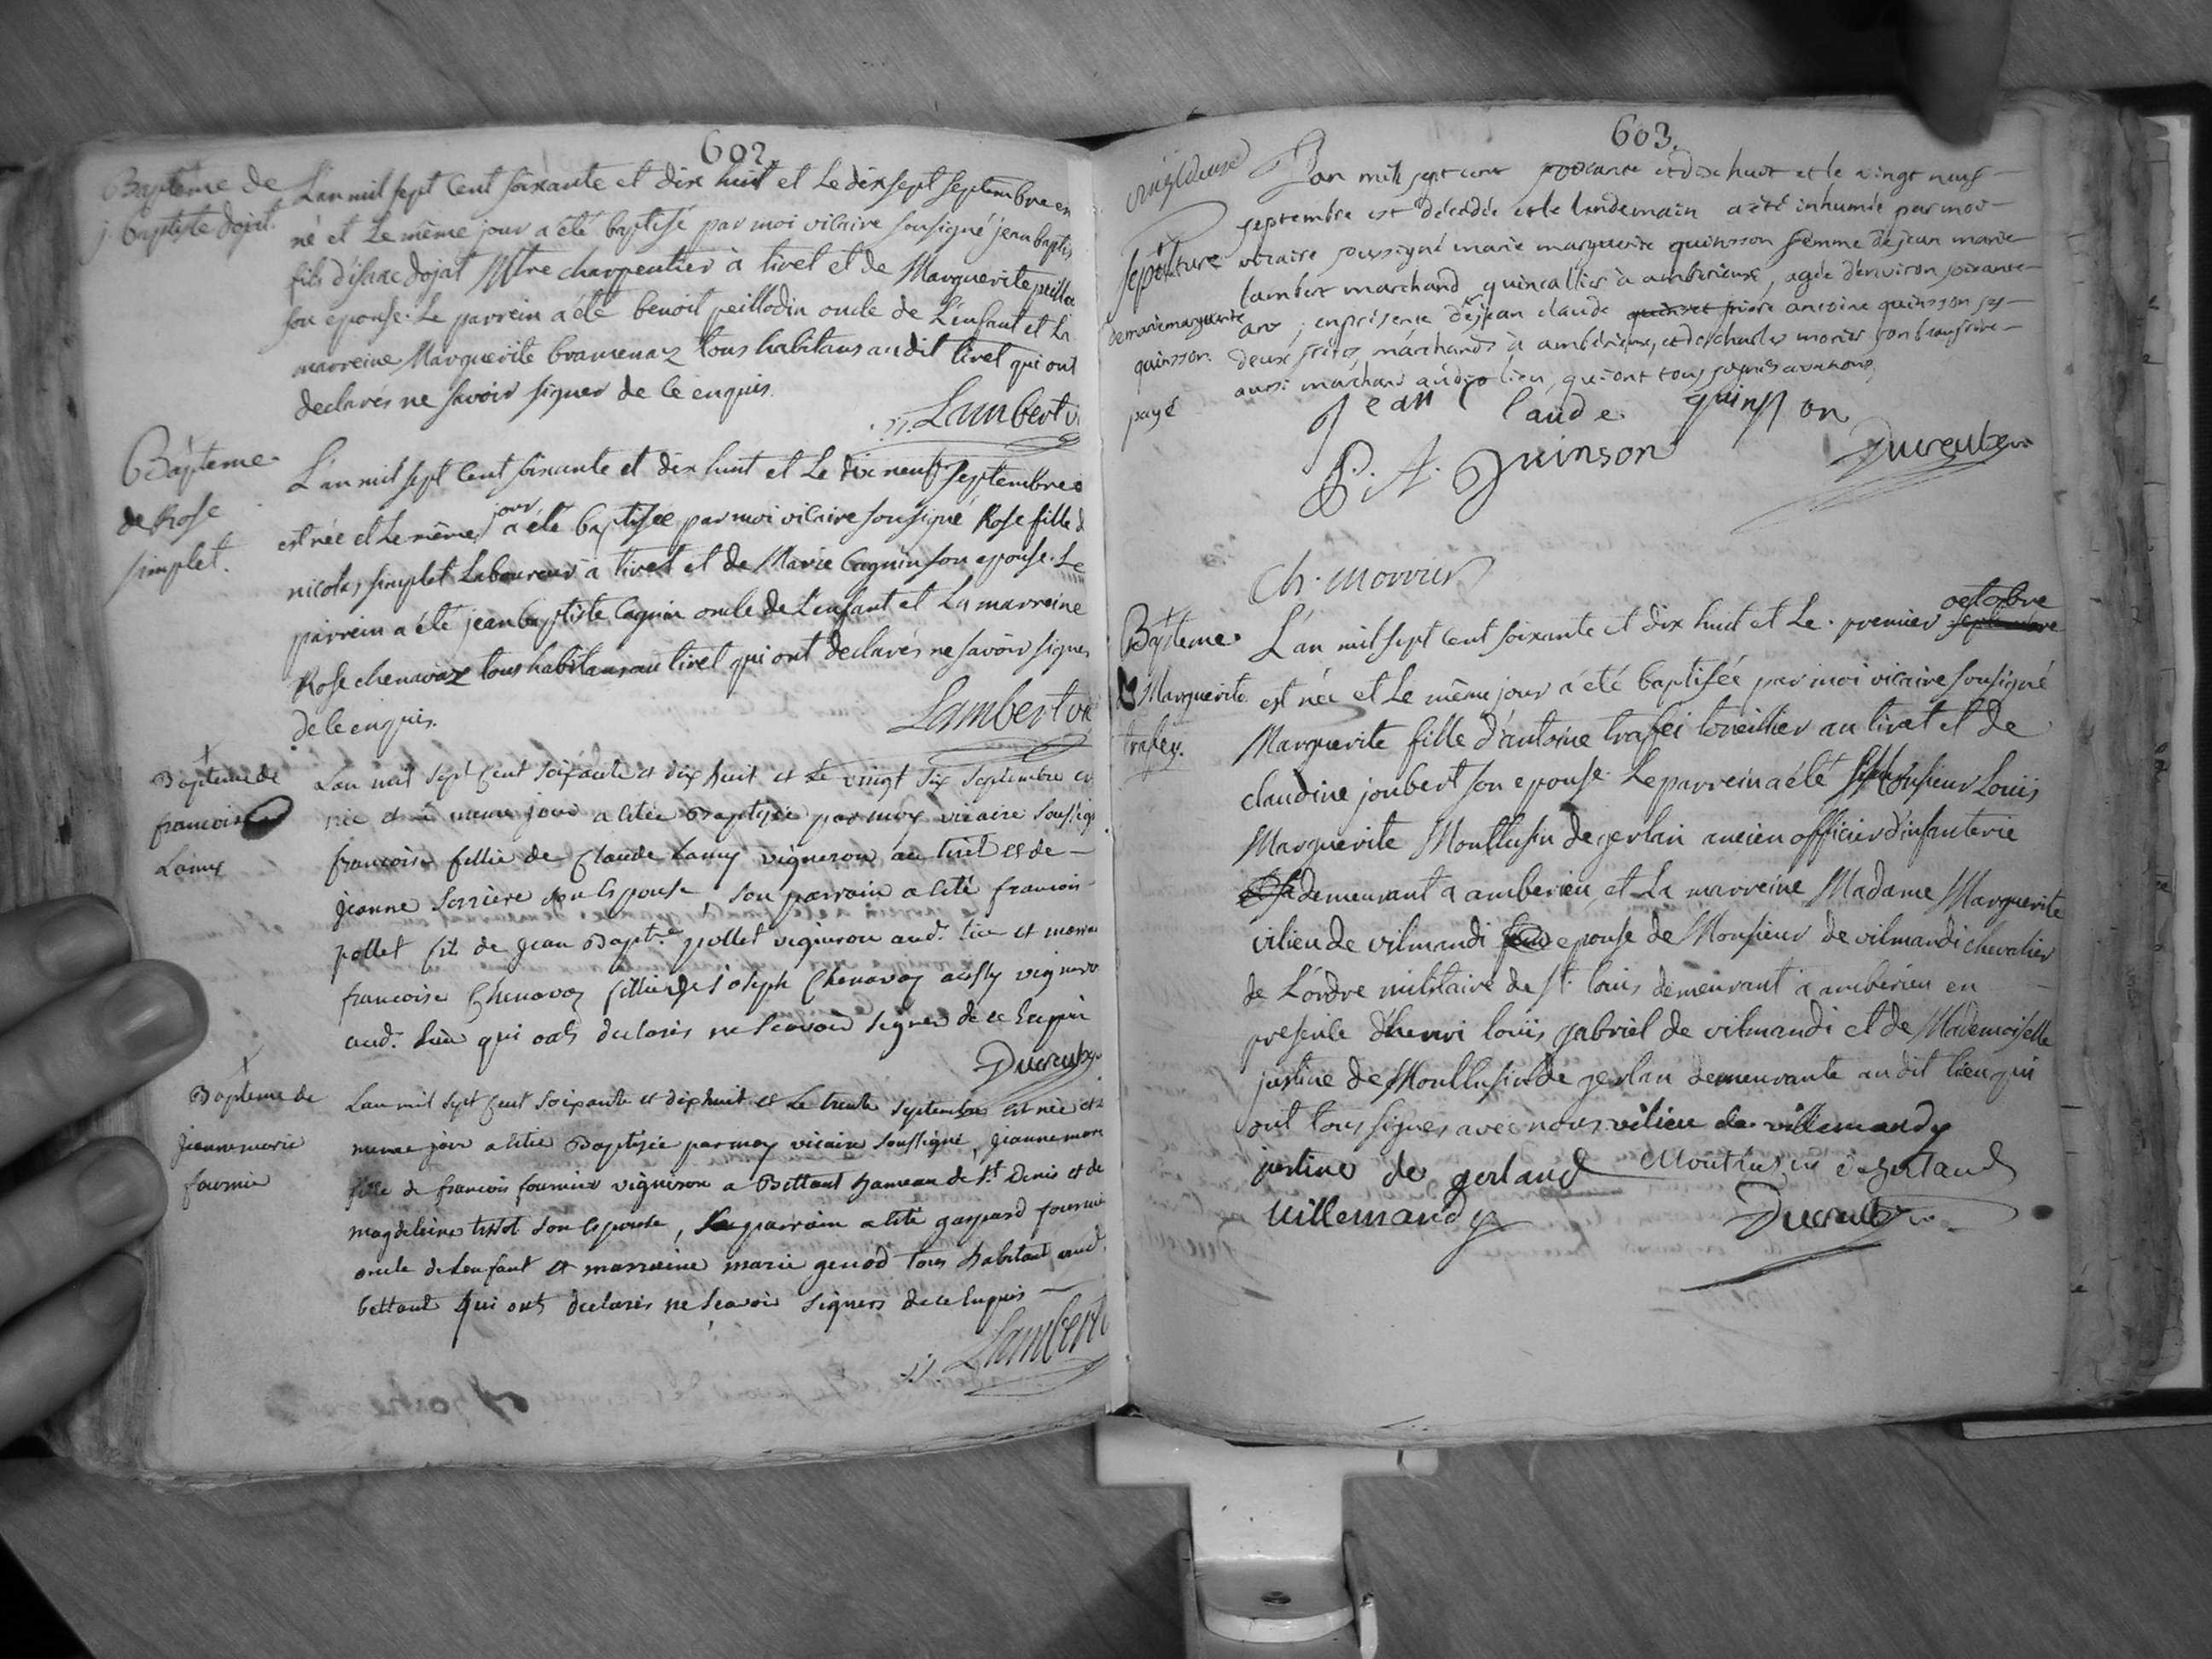 602.
Baptême de
j. baptiste dojat.
L'an mil sept Cent soixante et dix huit et Le dix sept septembre
né et Le même jour a été baptisé par moi vicaire sousigné jean baptis
fils d'isaac dojat Mtre charpentier à tiret et de Marguerite
son epouse. Le parrein a été benoit peillodin oncle de L'enfant et La
marreine Marguerite bramenaz tous habitans audit tiret qui ont
declarés ne savoir signer de ce enquis.
Lambert
Bâpteme
de Rose
simplet.
L'an mil sept Cent soixante et dix huit et Le dix neuf septembre
est née et Le même jour a été baptisée par moi vicaire sousigné Rose fille d
nicolas simplet Laboureur à tiret et de Marie Cagnin son epouse. Le
parrein a été jean baptiste Cagnin oncle de L'enfant et La marreine
Rose chenavaz tous habitans au tiret qui ont declarés ne savoir signer
de ce enquis.
Lambert vic
Bapteme de
francoise
Lamy
Lan mil sept Cent soixante et dix huit et Le vingt six septembre
née et meme jour a etée Baptisée par moy vicaire soussigné
francoise fillie de Claude Lamy vigneron au tiret et de
jeanne son Epouse, son parrain a été francois
pollet fils de jean Bapte. pollet vigneron aud. lieu et
francoise Chenavaz fillie de joseph Chenavaz aussy vigneron
aud. Lieu qui onts declarés ne scavoir signer de ce Enquis
Ducreux
Bapteme de
jeannemarie
fournier
Lan mil sept Cent soixante et dix huit et Le trente septembre est née et
meme jour a etée Baptisée par moy vicaire soussigné, jeanne
fille de francois fournier vigneron a Bettant hameau de St Denis et de
magdeleine tissot son Epouse, parrain a été gaspard fournier
oncle de Lenfant et marraine marie genod tous habitant aud.
bettant qui onts declarés ne scavoir signers de ce Enquis
Lambert
603.
Sepulture
de marie marguerite
quinsson.
payé
L'an mill sept cent soixante et dix huit et le vingt neuf
septembre est décédée et le lendemain a été inhumée par moi
vicaire soussigné marie marguerite quinsson femme de jean marie
Lambert marchand quincallier à amberieux, agée d'environ soixante
ans, en présence de jean claude antoine quinsson ses
deux frères, marchands à ambérieux, et de charles morier son beaufrère
aussi marchand audit lieu, qui ont tous signés avec nous,
jean Claude quinsson
P. A. Quinson
Ducreux
Ch. Morrier
Bâpteme
Marguerite
trafey.
L'an mil sept Cent soixante et dix huit et Le premier octobre
est née et Le même jour a été baptisée par moi vicaire sousigné
Marguerite fille d'antoine trafei au tiret et de
claudine joubert son epouse. Le parrein a été Monsieur Louis
Marguerite Montlusin de gerlan ancien officier d'infanterie
demeurant a amberieu, et La marreine Madame Marguerite
vilieu de vilmandi epouse de Monsieur de vilmandi chevalier
de L'ordre militaire de st. louis demeurant à ambérieu en
presence d'henri louis gabriel de vilmandi et de Mademoiselle
justine de Montlusin de gerlan demeurante au dit lieu qui
ont tous signes avec nous vilieu de villemandy
justine de gerland Montlusin de gerland
Villemandy Ducreux